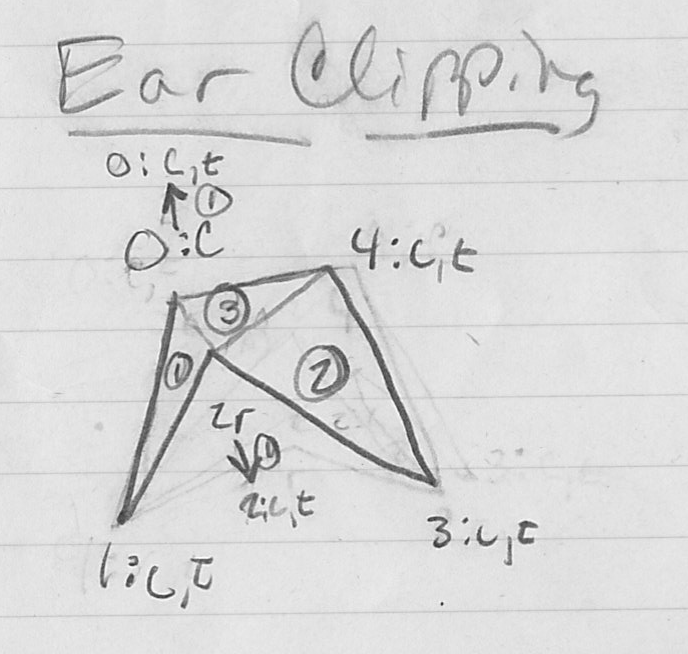 Ear Clipping
0:c,t
①
0:c
4:c,t
③
①
②
2r
①
2:c,t
3:c,t
1:c,t